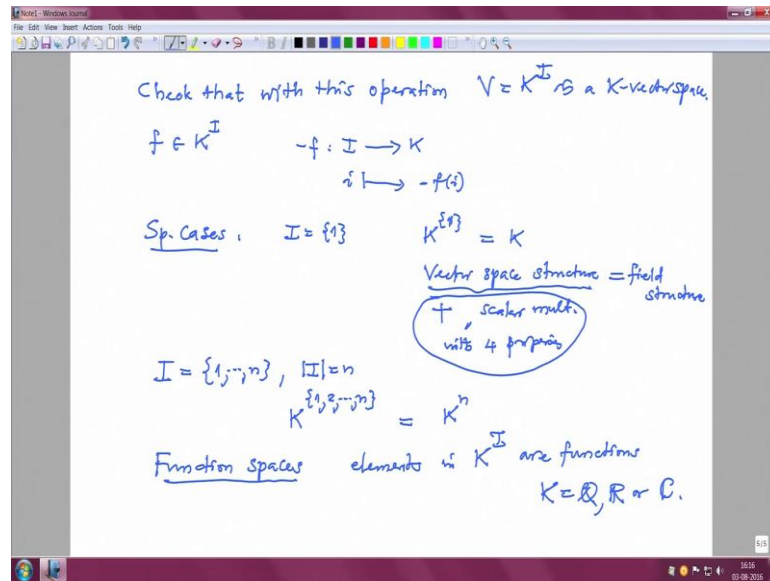 Note1 - Windows Journal
File Edit View Insert Actions Tools Help
Check that with this operation V = K^I is a K-vector space.
f ∈ K^I -f : I ⟶ K
i ⟼ -f(i)
Sp. Cases. I = {1} K^{1} = K
Vector space structure = field structure
+, scalar mult.
with 4 properties
I = {1,..,n}, |I|=n
K^{1,2,...,n} = K^n
Function spaces elements in K^I are functions
K = Q, R or C.
5/5
16:16
03-08-2016